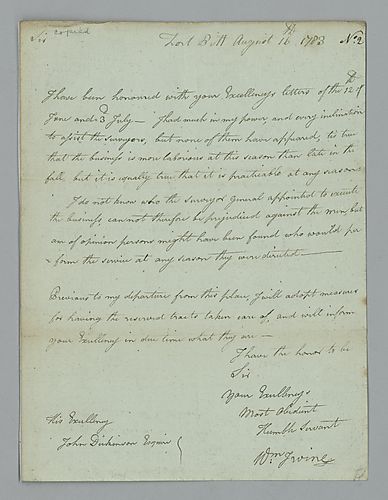 Sir copied
Fort Pitt August 16th 1783 No 2
I have been honoured with your Excellencys letters of the 12th of
June and 3d July — I had much in my power and every inclination
to assist the surveyors, but none of them have appeared, tis true
that the business is more laborious at this season than late in the
fall, but it is equally true that it is practicable at any season
I do not know who the surveyor general appointed to execute
the business, cannot therefore be prejudiced against the men, but
am of opinion persons might have been found who would per
form the service at any season they were directed —
Previous to my departure from this place, I will adopt measures
for having the reserved tracts taken care of, and will inform
your Excellency in due time what they are —
I have the honor to be
Sir
Your Excellencys
Most Obedient
Humble Servant
Wm Irvine
His Excellency
John Dickinson Esquire